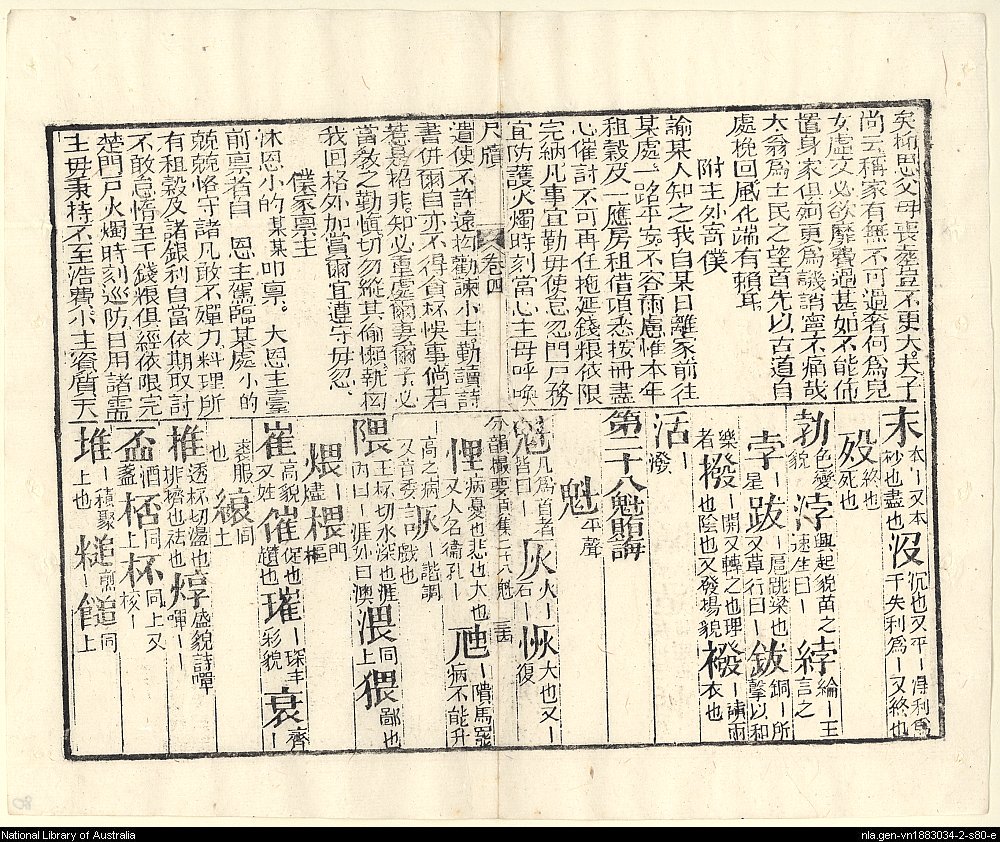 矣稱思父母喪葬豈不更大夫子
尚云稱家有無不可過奢何為兒
女虛文必欲靡費過甚如不能佈
置身家俱矧更為譏誚寧不痛哉
大翁為士民之望首先以古道自
處挽回風化端有賴耳
附主外寄僕
諭某人知之我自某日離家前往
某處一路平安不容爾慮惟本年
租穀及一應房租借項悉按冊盡
心催討不可再任拖延錢粮依限
完納凡事宜勤毋使怠忽門戶務
宜防護火燭時刻當心主毋呼喚
尺牘 卷四
遣使不許遠拘勸諫小主勤讀詩
書併爾自亦不得貪杯悞事倘若
惹是招非知必重處爾妻爾子必
當教之勤愼切勿縱其偷懶執拘
我回格外加賞爾宜遵守毋忽
僕家禀主
沐恩小的某某叩禀。大恩主臺
前禀者自 恩主駕臨某處小的
兢兢恪守諸凡敢不殫力料理所
有租穀及諸銀利自當依期取討
不敢怠惰至于錢粮俱經依限完
楚門戶火燭時刻巡防日用諸需
主毋秉持不至浩費小主資質天
末 衣一又本一杪也盡也 沒 沉也又平一淂利為一干失利為一又終也
歿 終也死也
勃 色變貌 浡 興起貌苗之速生曰一 綍 綸一王言之
孛 星一 跋 一扈跳梁也又草行曰一 鈸 銅一所擊以和
樂者 撥 一開又轉之也理也陰也又發揚貌 襏 一襫雨衣也
活 一潑
第二十八魁賄誨
魁 平聲
魁 凡為首者皆曰一 灰 火一石一 恢 大也又一復
分韻撮要 頁集 二十八魁 三五
悝 病憂也悲也大也又人名衞孔一 虺 一隤馬罷病不能升
高之病又音委 詼 一諧調戲也
隈 王杯切水深也涯內曰一涯外曰澳 渡 同上 猥 鄙也
煨 燼一 椳 門一樞
崔 高貌又姓 催 促也趲也 璀 一琛丰彩貌 衰 齊一
喪服也 縗 同上
推 透杯切盪也排擠也袪也 焞 盛貌詩嘽嘽一一
盃 酒一盞 桮 同上 杯 同上又核一
堆 一積聚土也 䭔 煎一 䭔 同上
National Library of Australia
nla.gen-vn1883034-2-s80-e